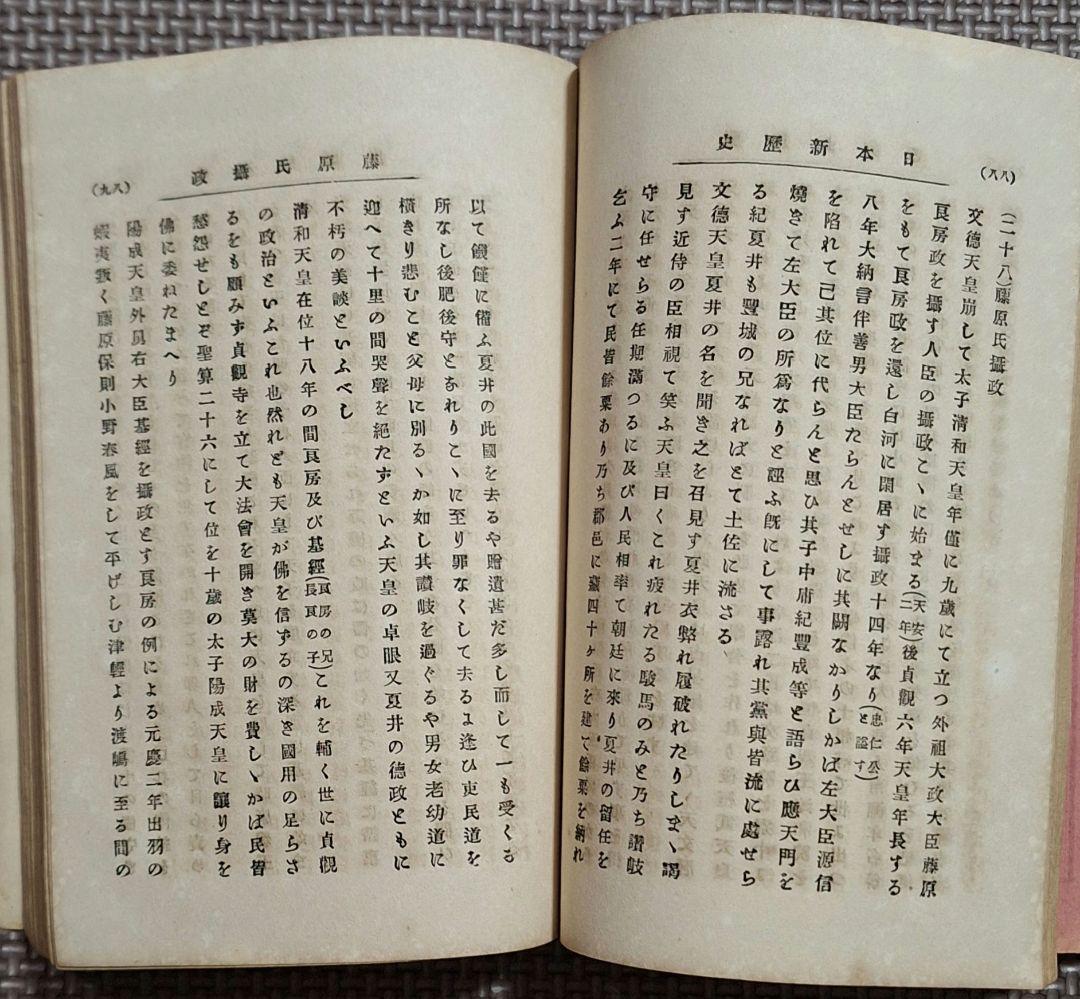 日本新歷史
(八八)
(二十八)藤原氏攝政
文德天皇崩して太子淸和天皇年僅に九歲にて立つ外祖大政大臣藤原
良房政を攝す人臣の攝政こゝに始まる(天安二年)後貞觀六年天皇年長する
をもて良房政を還し白河に閑居す攝政十四年なり(忠仁公と謚す)
八年大納言伴善男大臣たらんとせしに共闕なかりしかば左大臣源信
を陷れて己其位に代らんと思ひ其子中庸紀豐成等と語らひ應天門を
燒きて左大臣の所爲なりと誣ふ旣にして事露れ其黨與皆流に處せら
る紀夏井も豐城の兄なればとて土佐に流さる
文德天皇夏井の名を聞き之を召見す夏井衣弊れ履破れたりしまゝ謁
見す近侍の臣相視て笑ふ天皇曰くこれ疲れたる駿馬のみと乃ち讃岐
守に任せらる任期滿つるに及び人民相率て朝廷に來り夏井の留任を
乞ふ二年にて民皆餘粟あり乃ち郡邑に藏四十ヶ所を建て餘粟を納れ
藤原氏攝政
(八九)
以て饑饉に備ふ夏井の此國を去るや贈遺甚だ多し而して一も受くる
所なし後肥後守となれりこゝに至り罪なくして去るよ逢ひ吏民道を
橫きり悲むこと父母に別るゝか如し其讃岐を過ぐるや男女老幼道に
迎へて十里の間哭聲を絕たずといふ天皇の卓眼又夏井の德政ともに
不朽の美談といふべし
淸和天皇在位十八年の間良房及び基經(良房の兄長良の子)これを輔く世に貞觀
の政治といふこれ也然れども天皇が佛を信ずるの深き國用の足らさ
るをも顧みず貞觀寺を立て大法會を開き莫大の財を費しゝかば民皆
愁怨せしとぞ聖算二十六にして位を十歲の太子陽成天皇に讓り身を
佛に委ねたまへり
陽成天皇外舅右大臣基經を攝政とす良房の例による元慶二年出羽の
蝦夷叛く藤原保則小野春風をして平げしむ津輕より渡嶋に至る間の